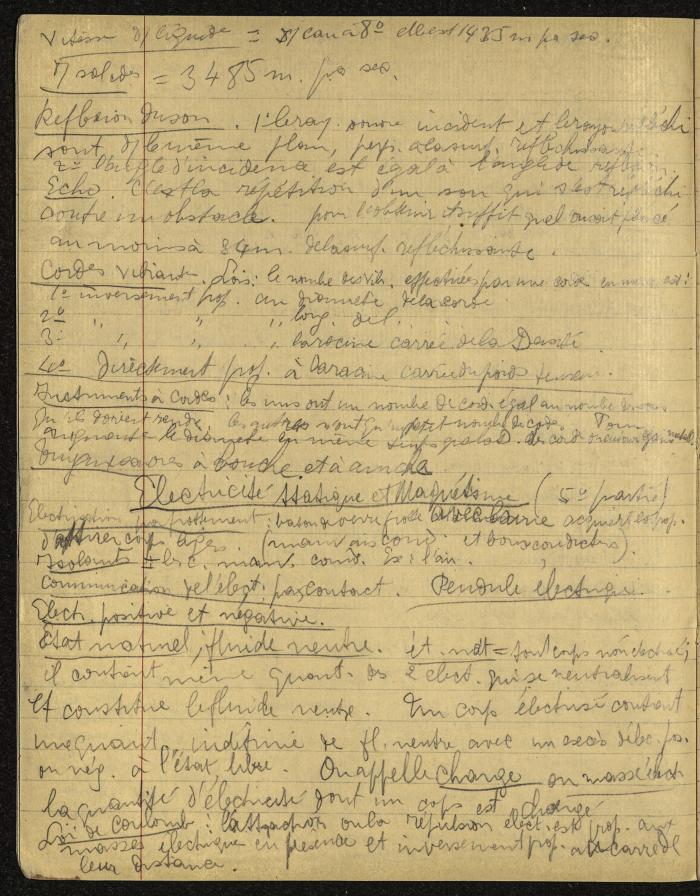 Vitesse d/ liquide = D/ l'eau à 8° elle est 1435 m par sec.
D/ solides = 3485 m. par sec.
Reflexion du son. 1° le ray. sonore incident et le rayon réfléchi
sont d/ le même plan, perp. à la surf. réfléchissante
2° l'angle d'incidence est égal à l'angle de reflex.
Echo. C'est la répétition d'un son qui s'est réfléchi
contre un obstacle. pour l'obtenir il suffit quel'on soit placé
au moins à 84m. de la surf. réflechissante.
Cordes vibrantes. Lois: le nombre des vib. effectuées par une corde en est:
1° inversement prop. au diametre de la corde
2° " " " long. de l.
3° " " " la racine carrée de la Densité
4° Directement prop. à la racine carrée du poids tenseur.
Instruments à cordes: les uns ont un nombre de cordes égal au nombre de sons
qu'ils doivent rendre, les autres n'ont qu'un petit nombre de cordes. Pour
augmenter le diametre en même temps
à bouche et à anche
Electricité statique et Magnétisme (5° partie)
Electrisation par frottement: baton de verre frotté avec laine acquiert la prop.
d'attirer corps légers. (mauvais cond. et bons conducteurs).
Isolants = les c. mauv. cond. Ex: l'air.
Communication de l'élect. par contact. Pendule électrique.
Elect. positive et négative.
Etat naturel, fluide neutre. ét. nat = tout corps non électrisé;
il contient même quant. des 2 elect. qui se neutralisent
et constitue le fluide neutre. Un corps électrisé contient
une quant. indéfinie de fl. neutre avec un excès d'élec. pos.
ou nég. à l'état libre. On appelle charge ou masse élect.
la quantité d'électricité dont un corps est chargé
Loi de Coulomb: l'attraction ou la répulsion elect. est prop. aux
masses électrique en présence et inversement prop. au carré de
leur distance.